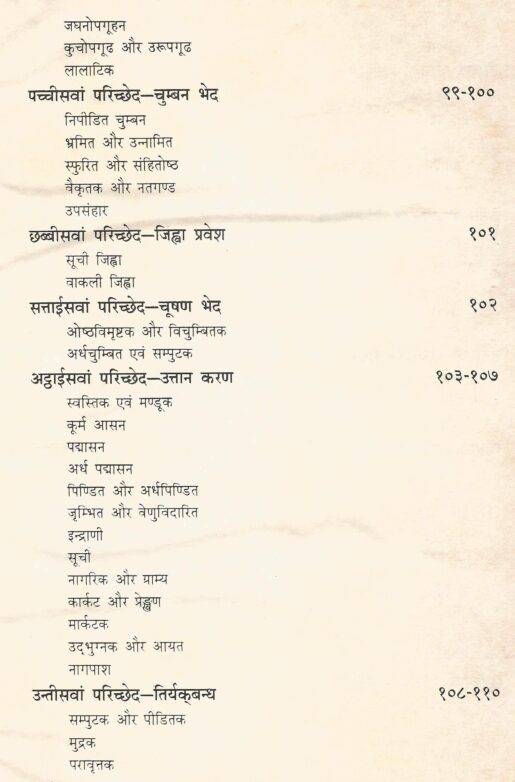 जघनोपगूहन
कुचोपगूढ और उरूपगूढ
लालाटिक
पच्चीसवां परिच्छेद—चुम्बन भेद ९९-१००
निपीडित चुम्बन
भ्रमित और उन्नामित
स्फुरित और संहितोष्ठ
वैकृतक और नतगण्ड
उपसंहार
छब्बीसवां परिच्छेद—जिह्वा प्रवेश १०१
सूची जिह्वा
वाकली जिह्वा
सत्ताईसवां परिच्छेद—चूषण भेद १०२
ओष्ठविमृष्टक और विचुम्बितक
अर्धचुम्बित एवं सम्पुटक
अट्ठाईसवां परिच्छेद—उत्तान करण १०३-१०७
स्वस्तिक एवं मण्डूक
कूर्म आसन
पद्मासन
अर्ध पद्मासन
पिण्डित और अर्धपिण्डित
जृम्भित और वेणुविदारित
इन्द्राणी
सूची
नागरिक और ग्राम्य
कार्कट और प्रेङ्खण
मार्कटक
उद्भुग्नक और आयत
नागपाश
उन्तीसवां परिच्छेद—तिर्यक्‌बन्ध १०८-११०
सम्पुटक और पीडितक
मुद्रक
परावृत्तक